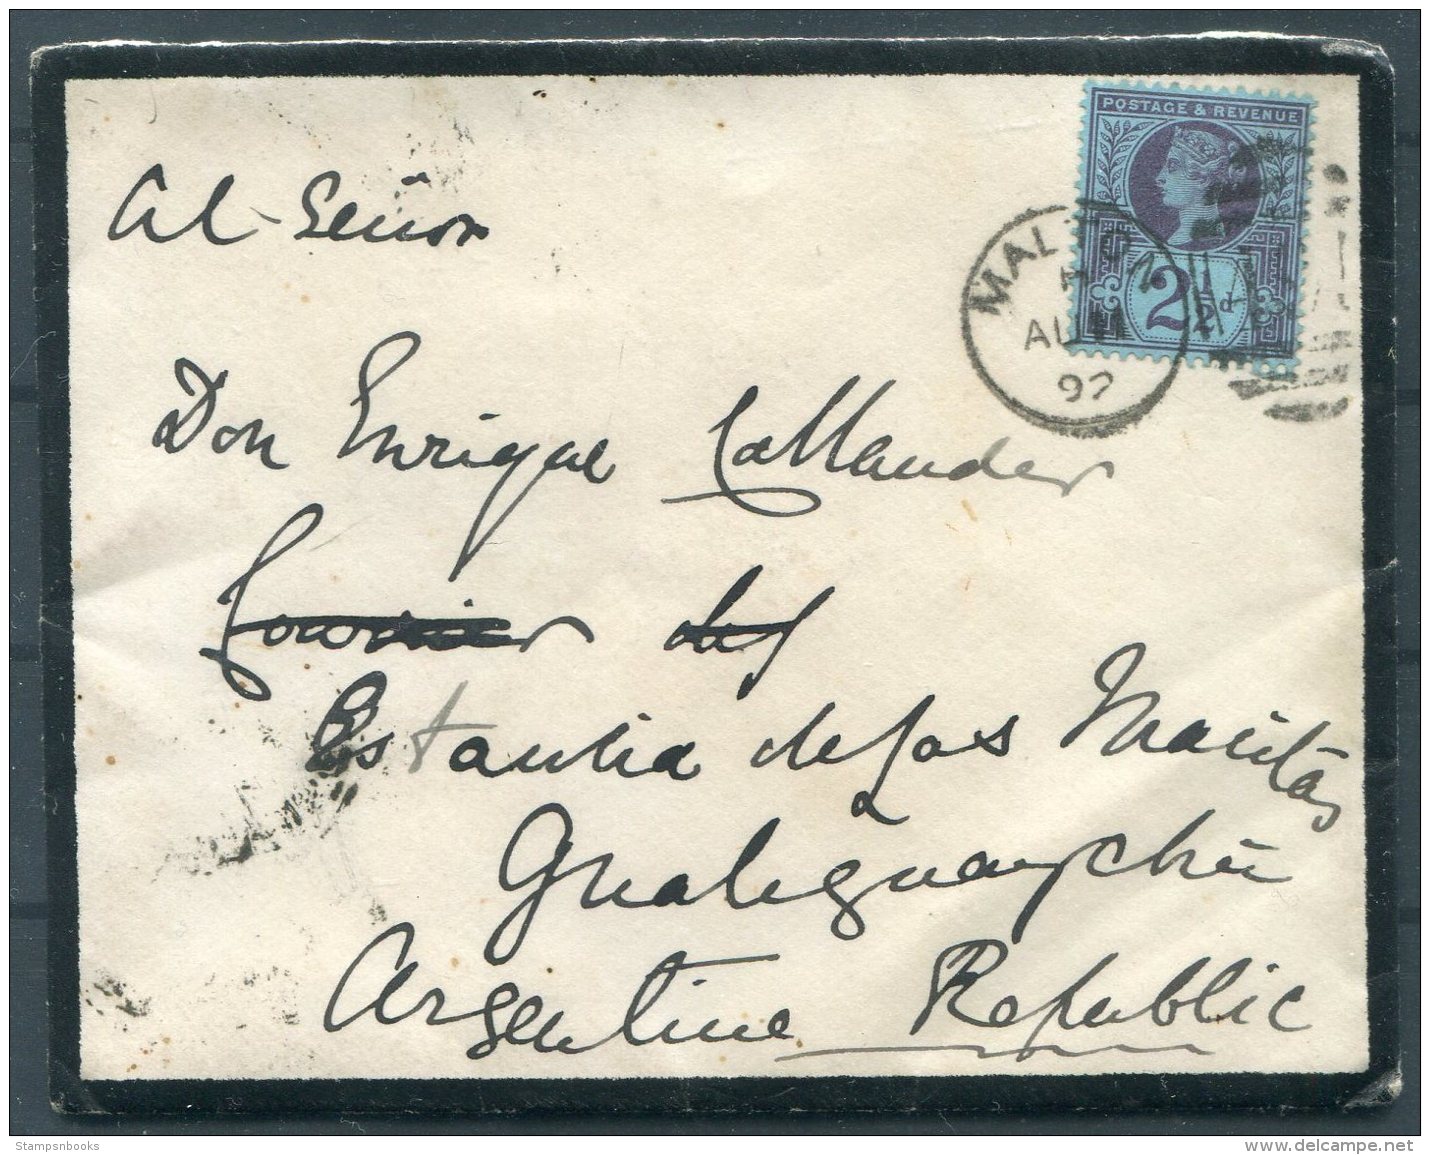 POSTAGE & REVENUE
2½d
MALTON
A
AU 11
92
Al Señor
Don Enrique Callander
Estancia de las Maritas
a
Gualeguaychú
Argentine Republic
Stampsnbooks
www.delcampe.net